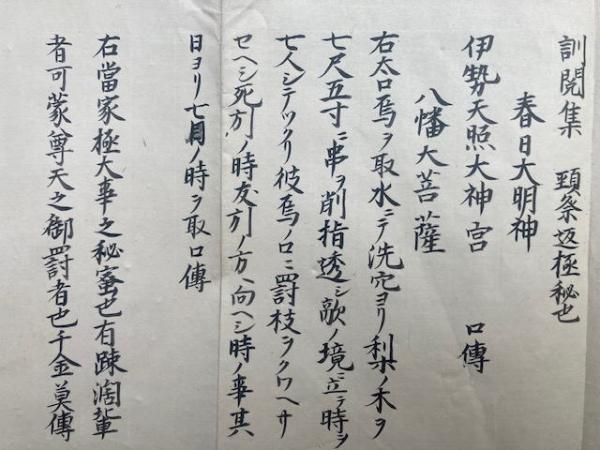 訓閲集　頚祭返極秘也
春日大明神
伊勢天照大神宮　口傳
八幡大菩薩
右太口焉ヲ取水ニテ洗穴ヨリ梨ノ木ヲ
七尺五寸ニ串ヲ削指透シ敵ノ境ニ立テ時ヲ
七人シテツクリ彼焉ノ口ニ罸枝ヲクワヘサ
セヘシ死刻ノ時友刻ノ方ヘ向ヘシ時ノ事其
日ヨリ七月ノ時ヲ取口傳
右當家極大事之秘密也有踈濶輩
者可蒙尊天之御罸者也千金莫傳